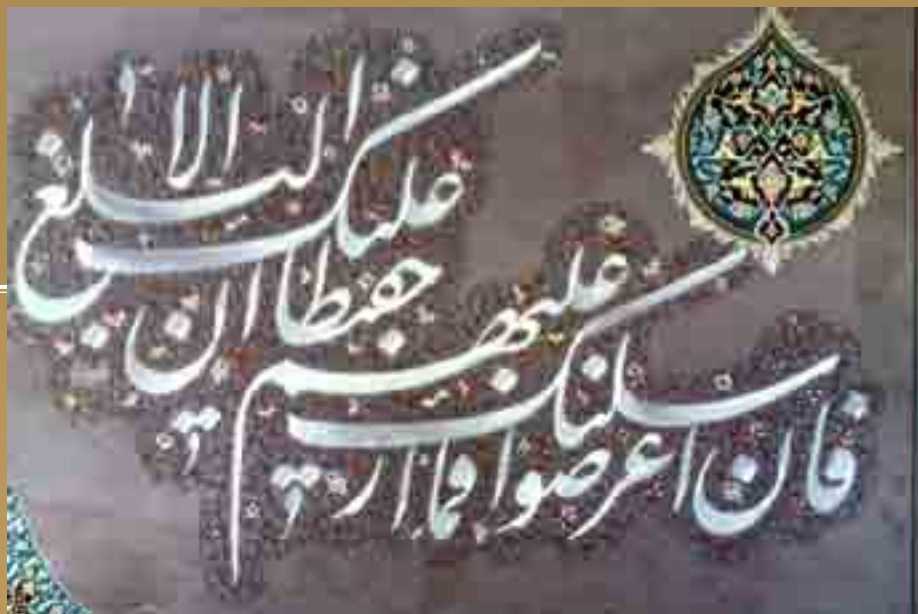 فان اعرضوا فما ارسلنک علیهم حفیظا ان علیک الا البلغ